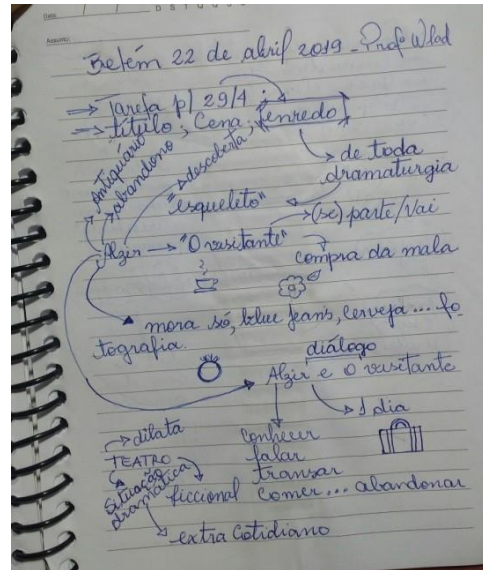 Data:
Assunto:
Belém 22 de abril 2019 - Profº Wlad
⇒ Tarefa p/ 29/4:
⇒ título; Cena; [enredo]
Antiquário
abandono
descoberta
→ de toda
dramaturgia
"esqueleto"
→ (se) parte/vai
Alzir → "O visitante"
compra da mala
mora só, blue jeans, cerveja... fo
tografia.
diálogo
Alzir e O visitante
→ 1 dia
→ dilata
TEATRO
Situação
dramática
ficcional
→ extra cotidiano
conhecer
falar
transar
comer... abandonar